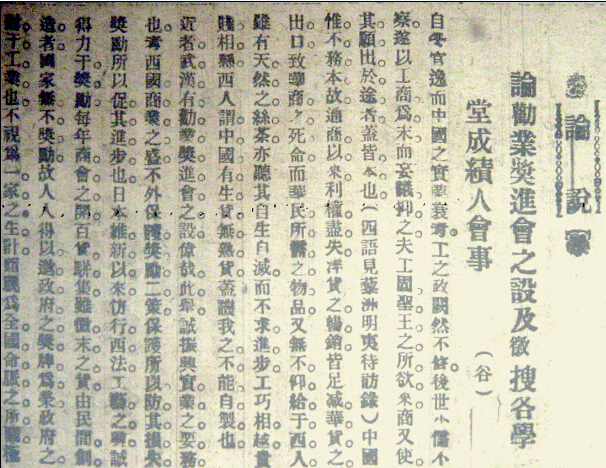 論說
論勸業獎進會之設及徵搜各學
堂成績入會事
（谷）
自冬官逸而中國之實業衰考工之政闕然不修後世小儒不
察遂以工商爲末而妄議抑之夫工固聖王之所欲來商又使
其願出於途者蓋皆本也（四語見黎洲明夷待訪錄）中國
惟不務本故通商以來利權盡失洋貨之暢銷皆足減華貨之
出口致華商之死命而華民所需之物品又無不仰給于西人
雖有天然之絲茶亦聽其自生自滅而不求進步工巧相越貴
賤相懸西人謂中國有生貨無熟貨蓋譏我之不能自製也
近者武漢有勸業獎進會之設偉哉此舉誠振興實業之要務
也考西國商業之盛不外保護獎勵二策保護所以防其損失
獎勵所以促其進步也日本維新以來仿行西法工藝之興誠
得力于獎勵每年商會之開百貨駢集雖微末之貨由民間創
造者國家無不獎勵故人人得以邀政府之獎牌爲業政府之
于工業也不視爲一家之生計而視爲全國命脈之所關